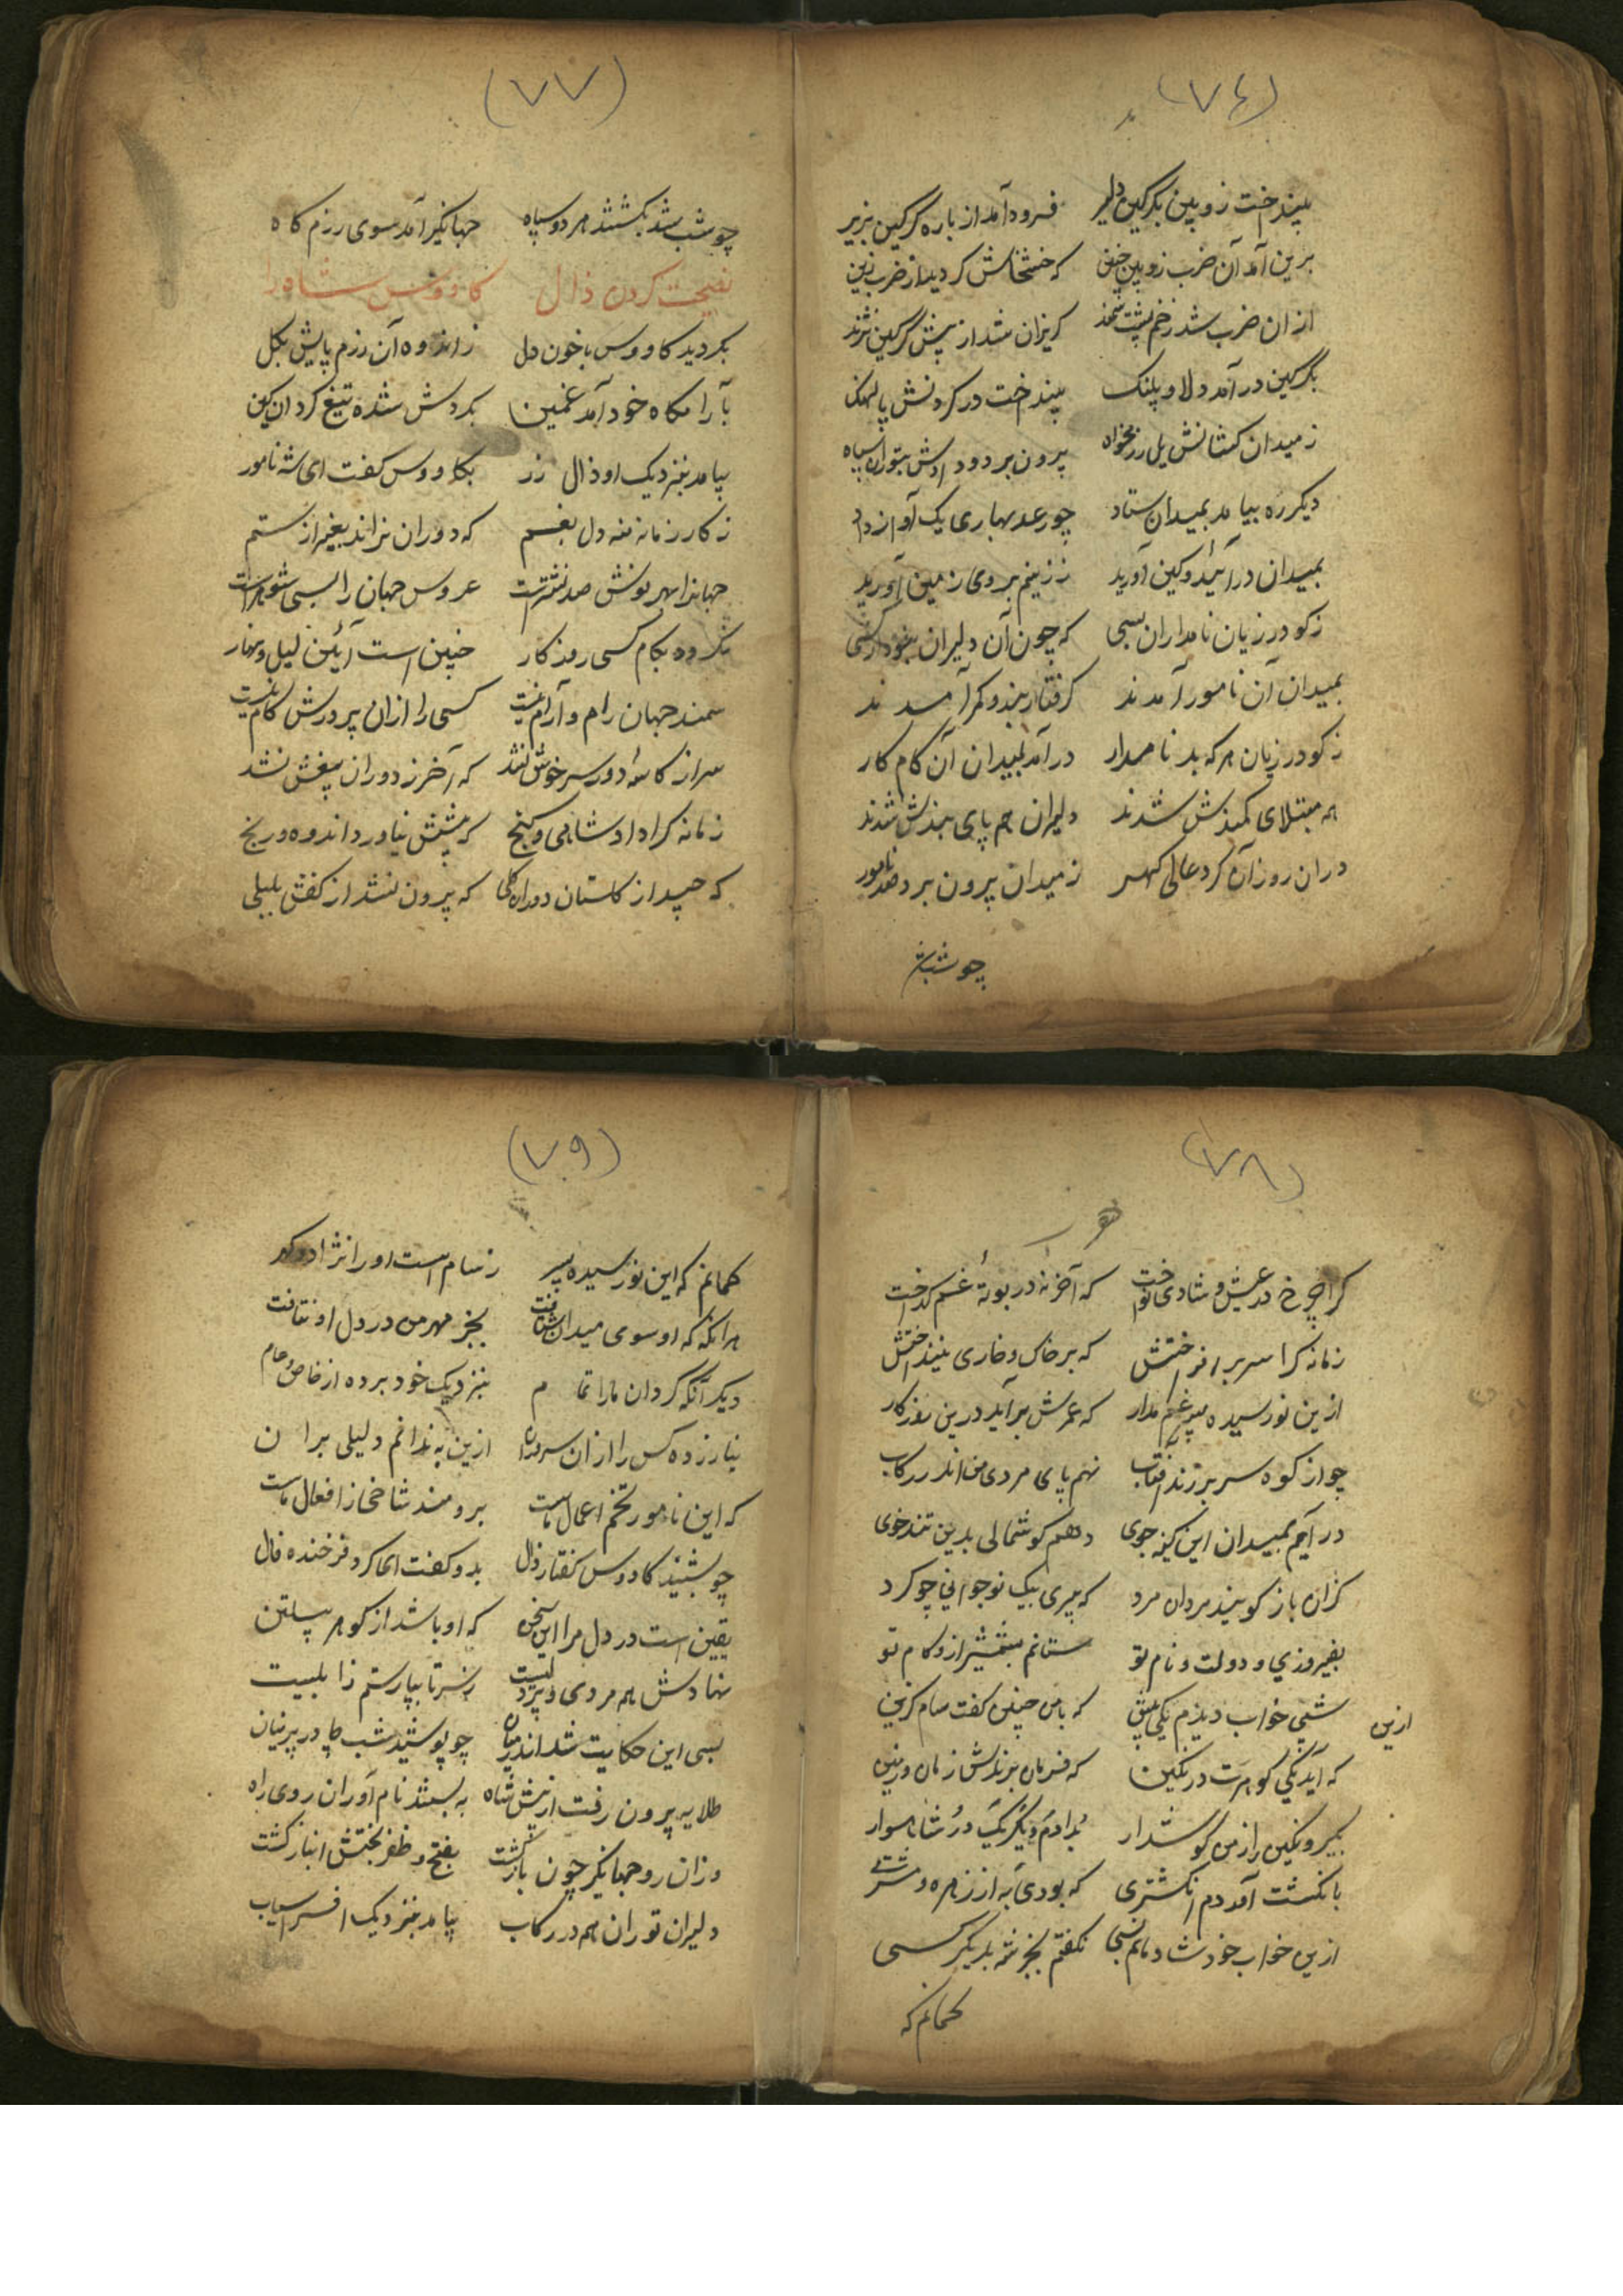 (٧٤)
بینداخت زوبین بگرگین دلیر فرود آمد از باره گرگین بزیر
برین آمد آن ضرب زوبین چنین که خشخاش گردید از ضرب زین
ازان ضرب شد زخم پشت سمند گریزان شد از پیش گرگین نژند
بگرگین در آمد دلاور پلنگ بینداخت در گردنش پالهنگ
زمیدان کشانش یل رزمخواه برون برد و دادش بتوران سپاه
دیگر ره بیامد بمیدان ستاد چو رعد بهاری یک آواز داد
بمیدان درآئید و کین آورید ززینم بروی زمین آورید
زگودرزیان نامداران بسی که چون آن دلیران نبود کسی
بمیدان آن نامور آمدند گرفتار بند و کمر آمدند
زگودرزیان هر که بد نامدار درآمد بمیدان آن کام کار
همه مبتلای کمندش شدند دلیران هم پای بندش شدند
دران روز آن گرد عالی گهر زمیدان برون برد صد نامور
چو شب شد
(٧٧)
چو شب شد بگشتند هر دو سپاه جهانگیر آمد سوی رزم گاه
نصیحت کردن ذال کاوس شاه را
بگردید کاووس با خون دل زاندوه آن رزم پایش بگل
بآرامگاه خود آمد غمین بگردش شده تیغ گردان کین
بیامد بنزدیک او ذال زر بکاووس گفت ای شه نامور
زکار زمانه منه دل بغم که دوران نراند بغیر از ستم
جهانرا بهر نوش صد نشترست عروس جهان را بسی شوهرست
نگردد بکام کسی روزگار چنین است آئین لیل و نهار
سمند جهان رام و آرام نیست کسی را ازان پرورش کام نیست
سر از کاسۀ دور سر خوش نشد که آخر ز دوران بیغش نشد
زمانه کرا داد شاهی و گنج که پیشش نیاورد اندوه و رنج
که چید از گلستان دوران گلی که پرون نشد از کفش بلبلی
(٧٨)
کرا چرخ در عیش و شادی نواخت که آخر نه در بوتۀ غم گداخت
زمانه کرا سر برافراختش که بر خاک و خاری نینداختش
ازین نورسیده پسر غم مدار که عمرش برآید درین روزگار
چو از کوه سر برزند آفتاب نهم پای مردی من اندر رکاب
درآیم بمیدان این کینه جوی دهم گوشمالی بدین تندخوی
کزان باز گویند مردان مرد که پیری بیک نوجوانی چو کرد
بفیروزی و دولت و نام تو ستانم بشمشیر ازو کام تو
شبی خواب دیدم یکی پیش ازین که بامن چنین گفت سام گزین
که آید یکی گوهرت در نگین که فرمان برندش زمان و زمین
بگیر و نگین راز من گوشدار بدادم دیگر یک در شاهوار
بانگشت آمد دم انگشتری که بودی به از زهره و مشتری
ازین خواب خود شادمانم بسی نگفتم بجز شه بدیگر کسی
گمانم که
(٧٩)
گمانم که این نورسیده پسر زسام است او را نژاد و گهر
هر آنگه که او سوی میدان شتافت بجز مهر من در دل او نتافت
دیگر آنکه گردان ما را تمام بنزدیک خود برده از خاص و عام
نیازرده کس را ازان سروران ازین به ندانم دلیلی بران
که این نامور تخم اعمال ماست برومند شاخی از افعال ماست
چو بشنید کاووس گفتار ذال بدو گفت ای گرد فرخنده فال
یقین است در دل مرا این سخن که او باشد از گوهر پیلتن
نهادش همه مردی و پردلیست زسر تا بپا رستم زابلیست
بسی این حکایت شد اندر میان چو پوشید شب چادر پرنیان
طلایه پرون رفت از پیش شاه به بستند نام آوران روی راه
وزان رو جهانگیر چون بازگشت بفتح و ظفر بختش انباز گشت
دلیران توران همه در رکاب بیامد بنزدیک افراسیاب